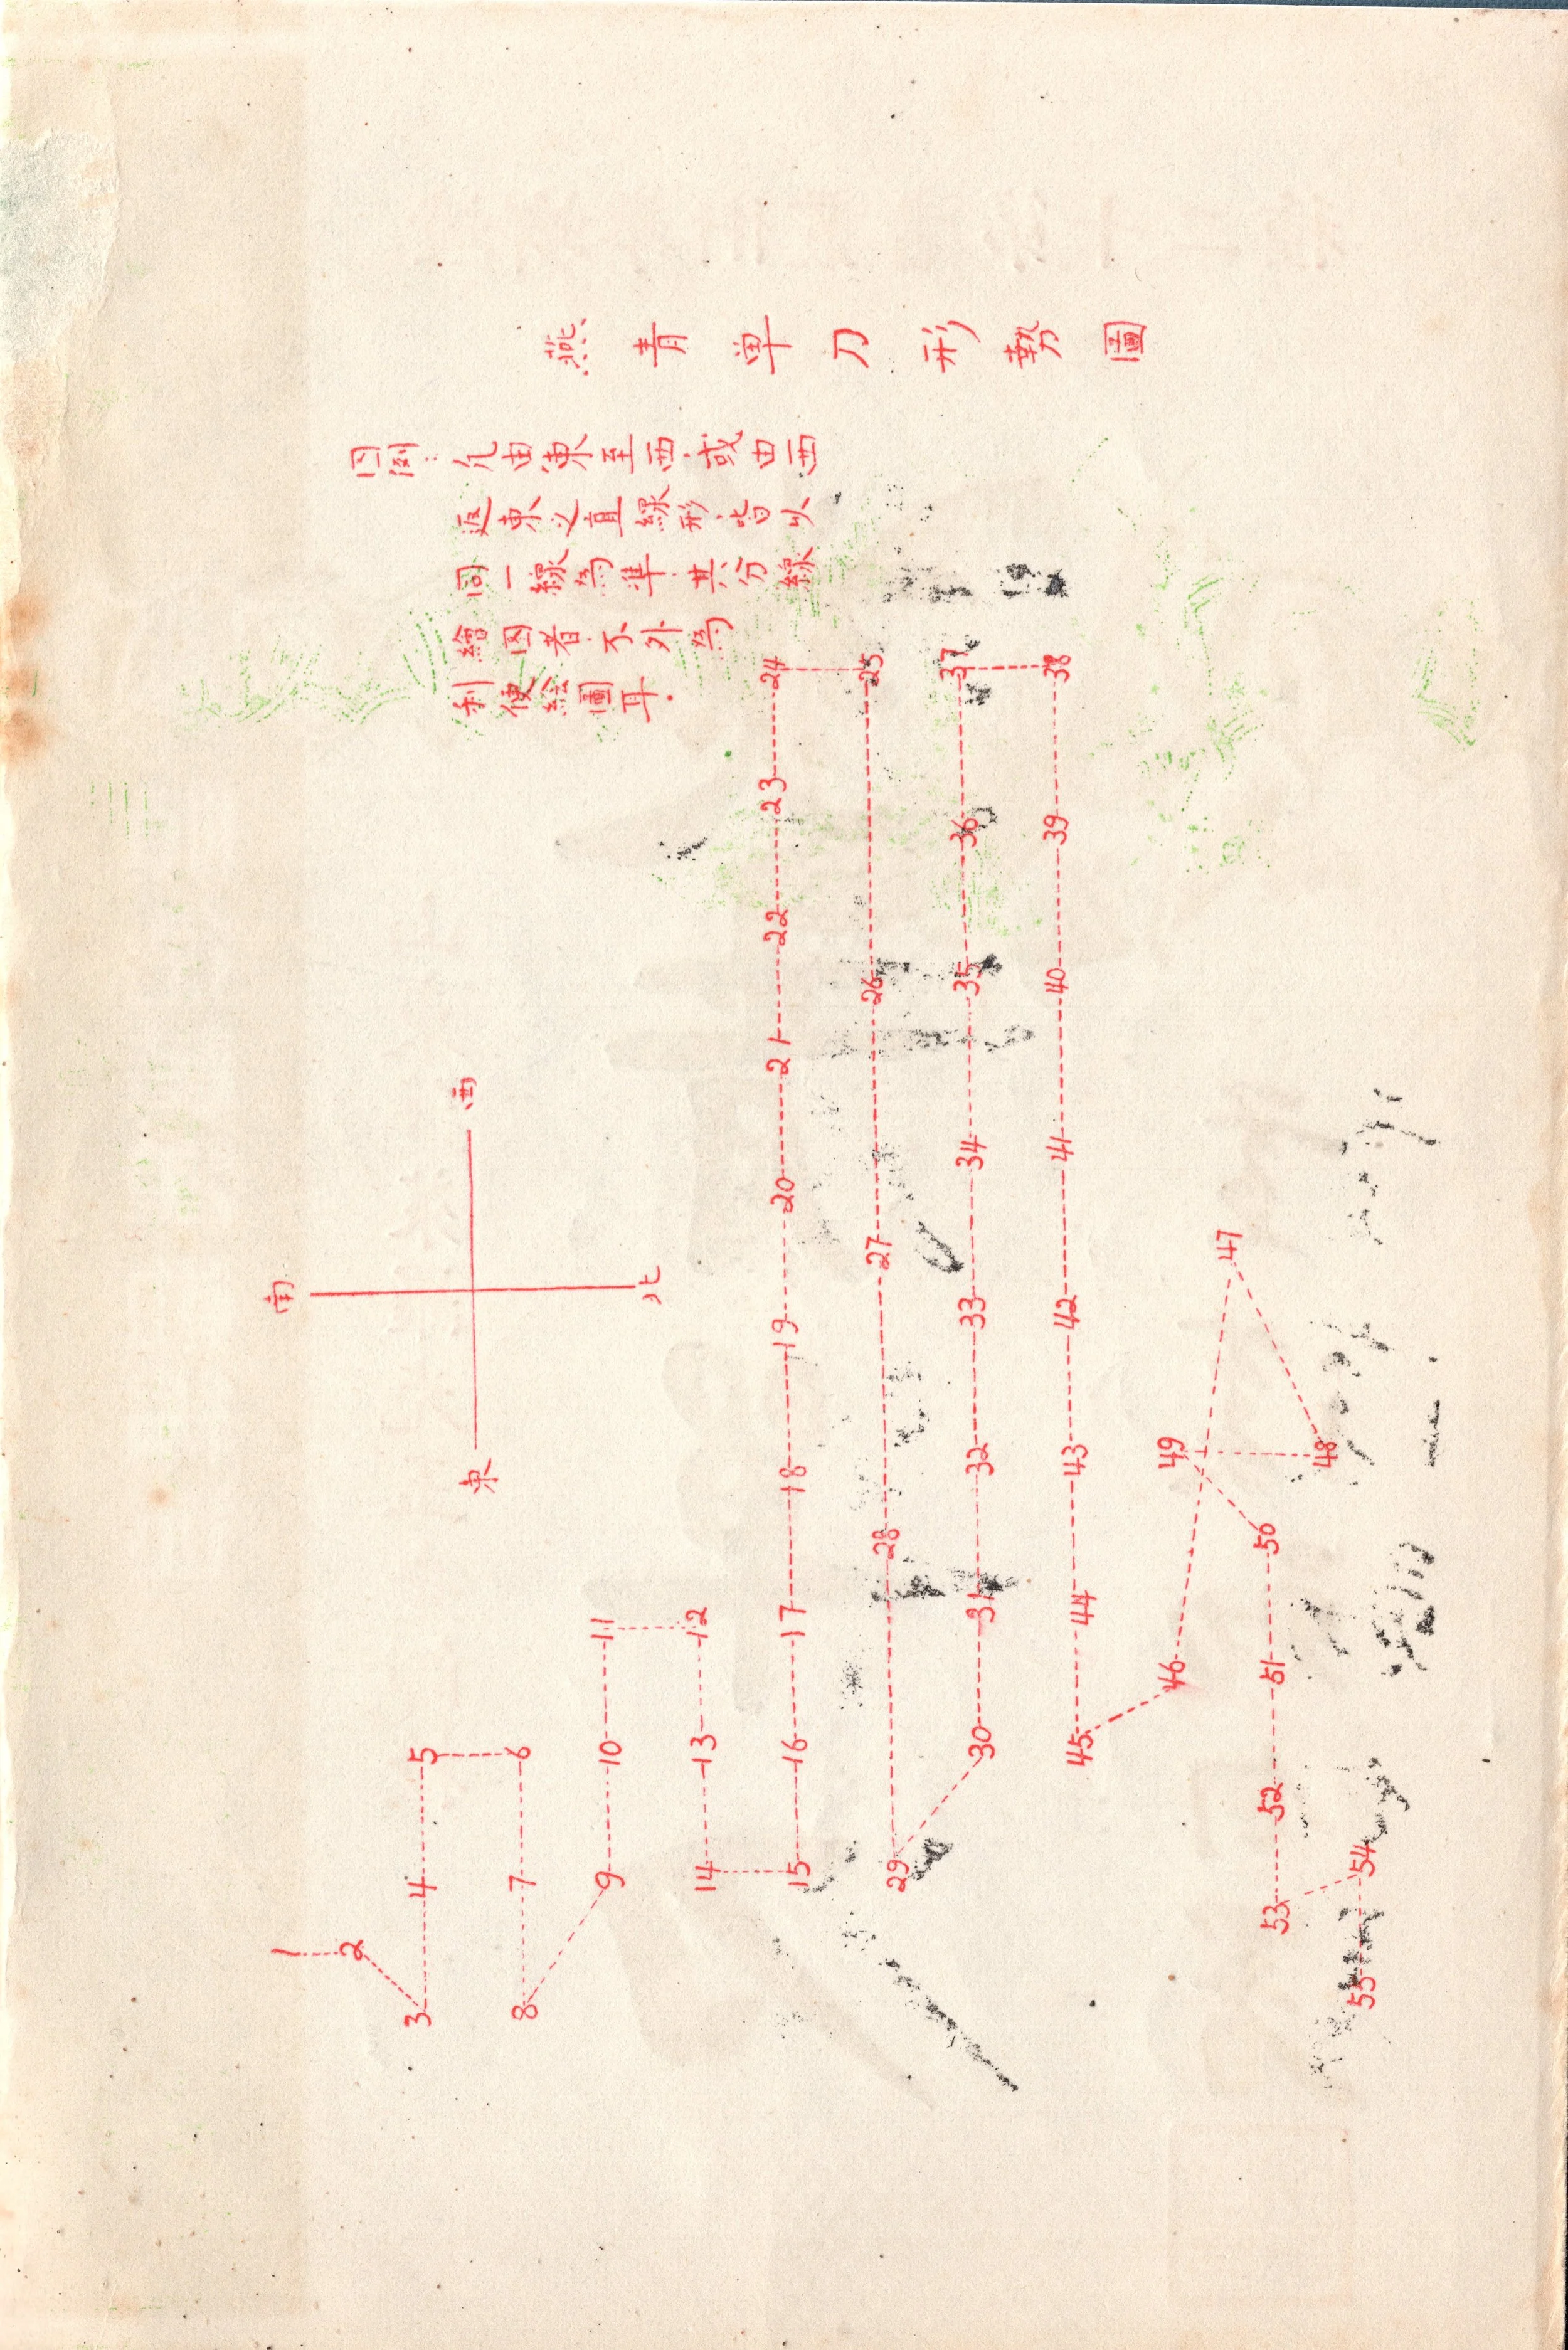 燕青単刀形勢圖
図例：凡由東至西.或由西
返東之直線形.皆以
同一線為準.其分線
繪図者.不外為
利便絵圖耳.
南
西
東
北
1
2
3 4 5
8 7 6
9 10 11
14 13 12
15 16 17 18 19 20 21 22 23 24
29 28 27 26 25
30 31 32 33 34 35 36 37
45 44 43 42 41 40 39 38
46 49 47
48
53 52 51 50
55 54